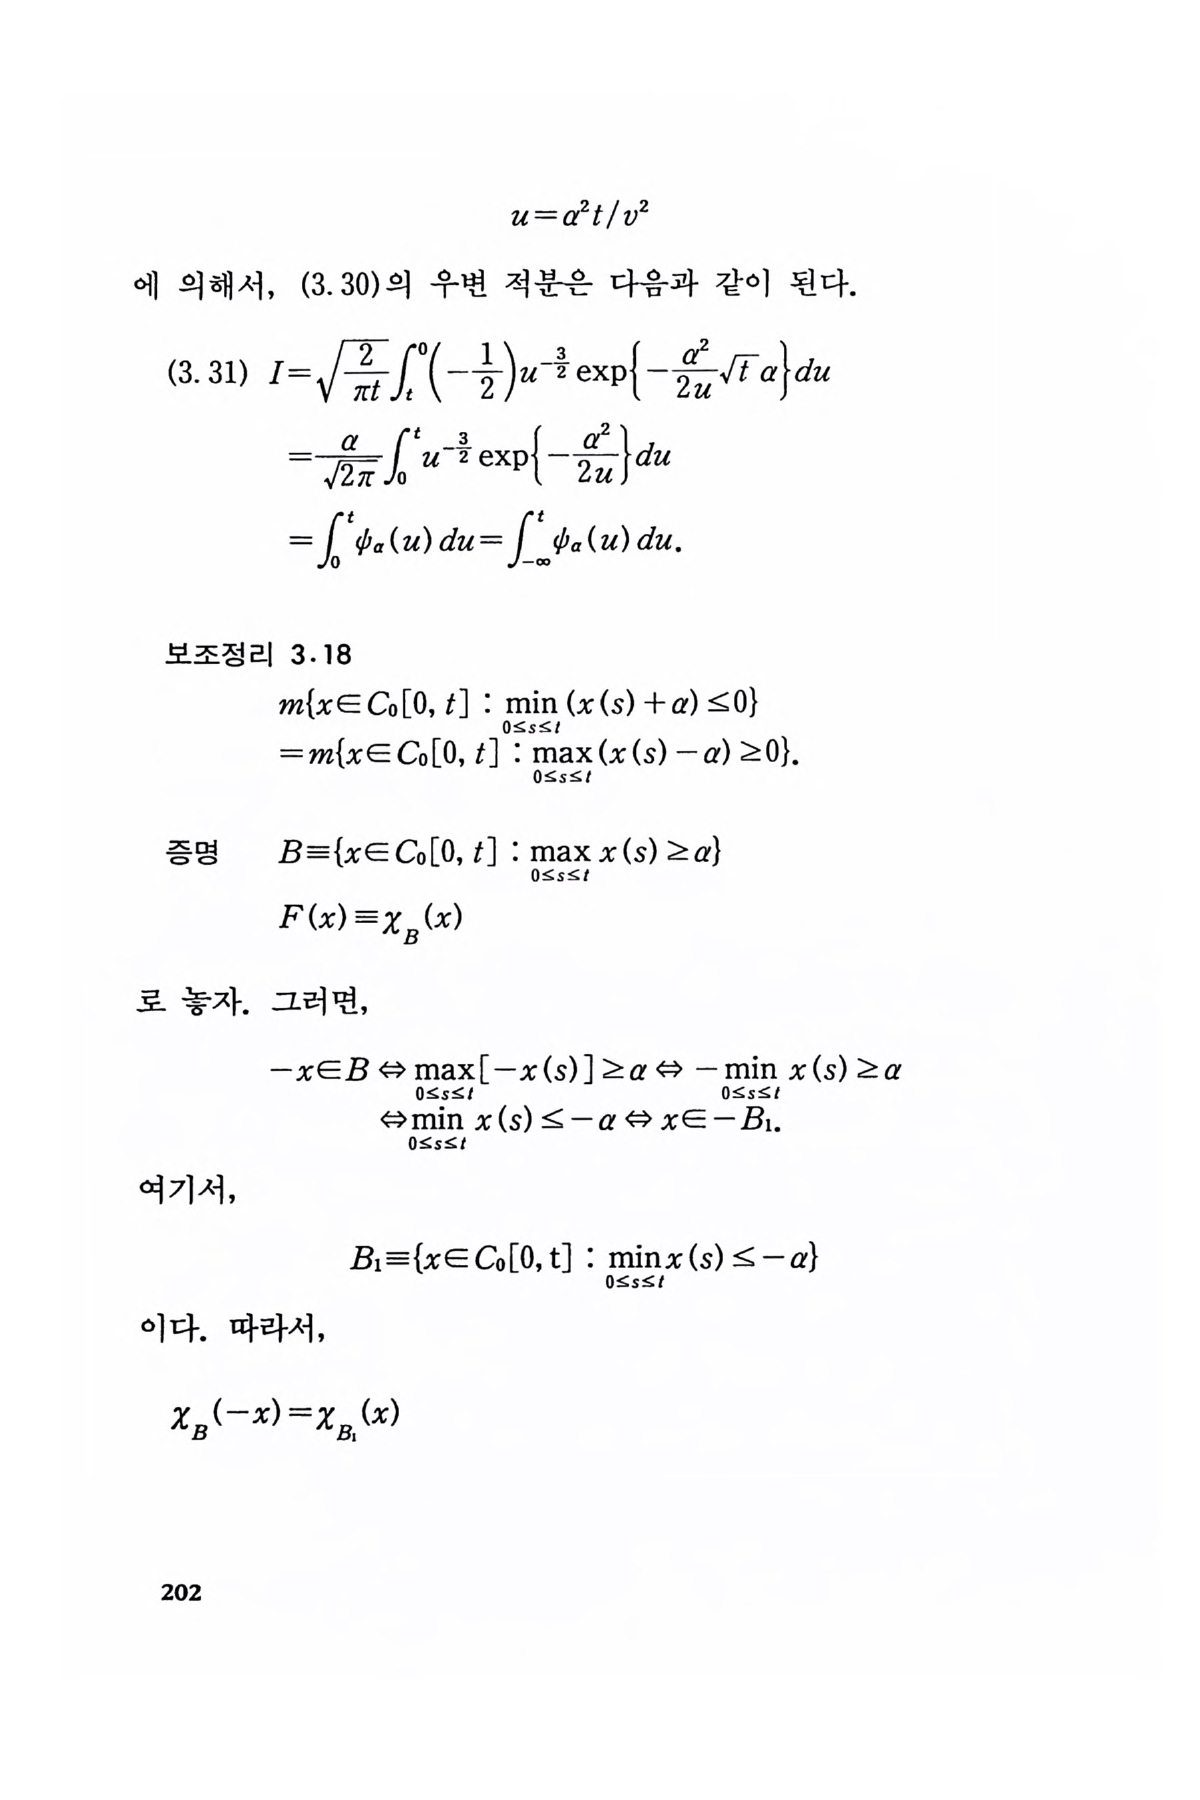 u=α²t/v²
에 의해서, (3.30)의 우변 적분은 다음과 같이 된다.
(3.31) I=√(2/πt) ∫ₜ⁰(−1/2)u^(−3/2) exp{−α²/2u √t α}du
=α/√2π ∫₀ᵗ u^(−3/2) exp{−α²/2u}du
=∫₀ᵗ ψ_α(u) du=∫_{−∞}^t ψ_α(u) du.
보조정리 3.18
m{x∈C₀[0, t] : min_{0≤s≤t} (x(s)+α)≤0}
=m{x∈C₀[0, t] : max_{0≤s≤t} (x(s)−α)≥0}.
증명 B≡{x∈C₀[0, t] : max_{0≤s≤t} x(s)≥α}
F(x)≡χ_B(x)
로 놓자. 그러면,
−x∈B⇔max_{0≤s≤t}[−x(s)]≥α⇔−min_{0≤s≤t} x(s)≥α
⇔min_{0≤s≤t} x(s)≤−α⇔x∈−B₁.
여기서,
B₁≡{x∈C₀[0, t] : min_{0≤s≤t} x(s)≤−α}
이다. 따라서,
χ_B(−x)=χ_{B₁}(x)
202